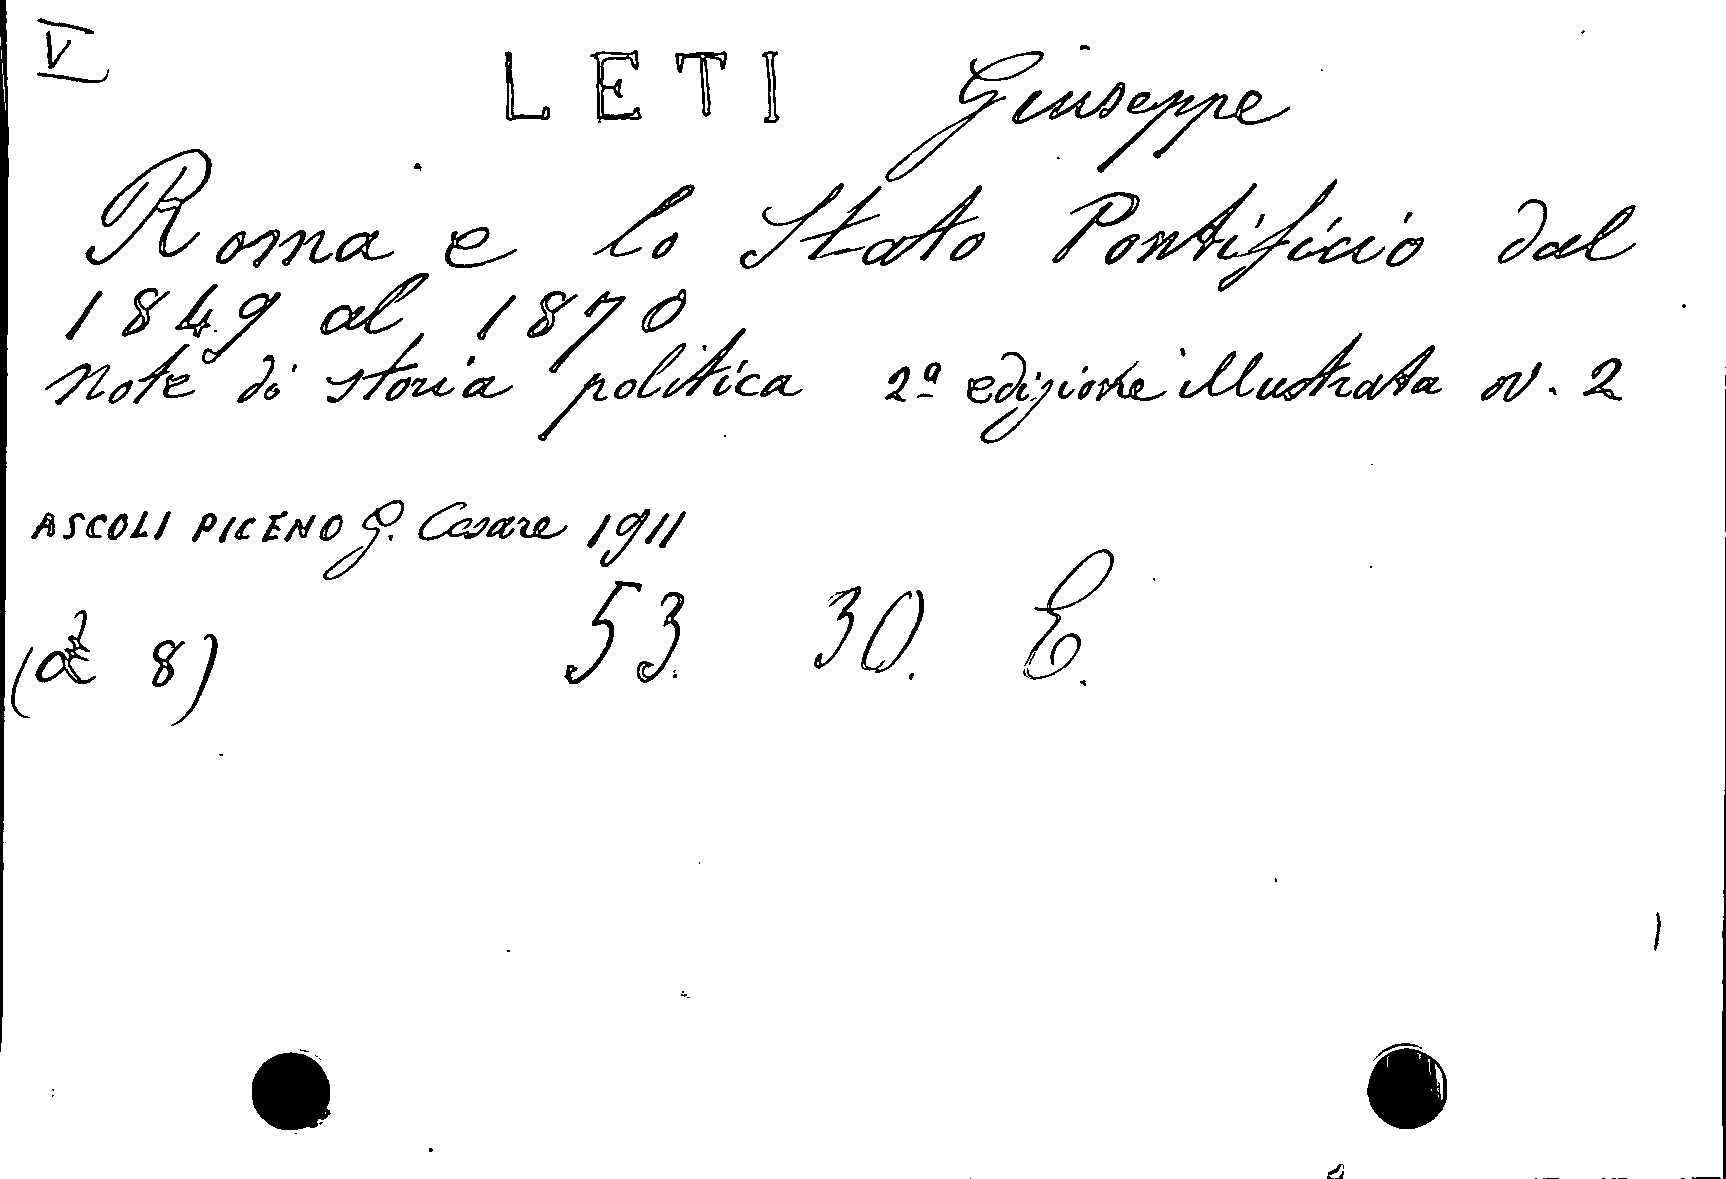 V
LETI Giuseppe
Roma e lo Stato Pontificio dal
1849 al 1870
note di storia politica 2ª edizione illustrata v. 2
ASCOLI PICENO G. Cesare 1911
53. 30. E.
( 8)